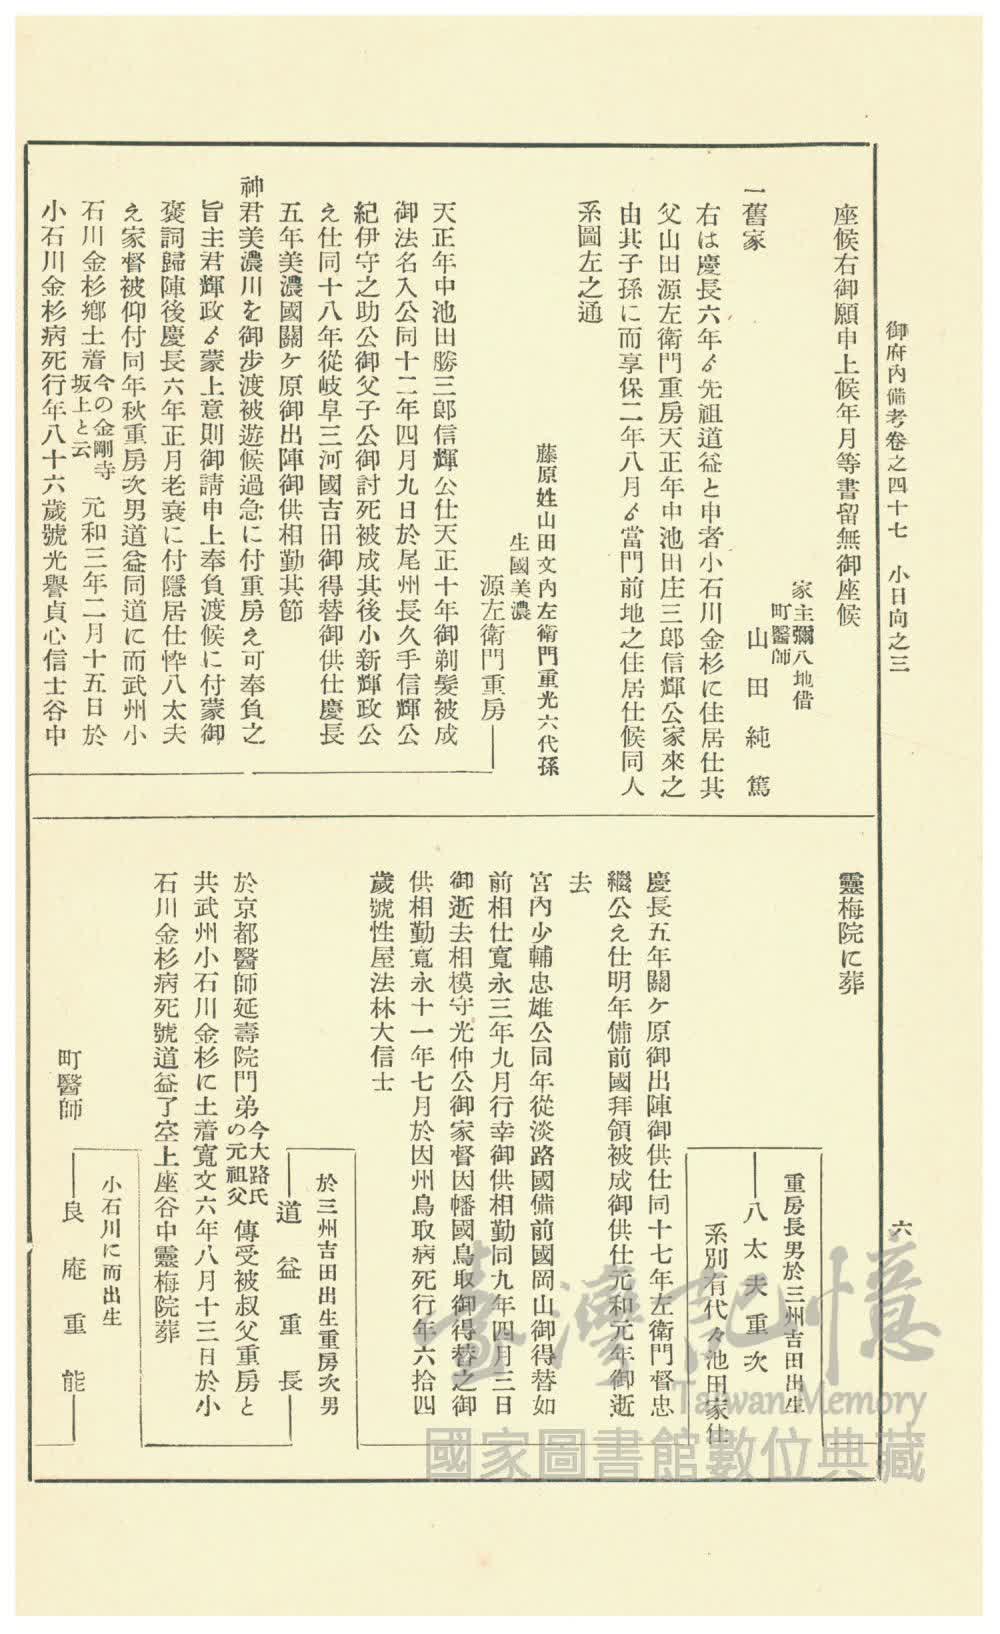 御府内備考卷之四十七　小日向之三
六
座候右御願申上候年月等書留無御座候
家主彌八地借
町醫師
一舊家　山田純篤
右は慶長六年ゟ先祖道益と申者小石川金杉に住居仕其
父山田源左衞門重房天正年中池田庄三郎信輝公家來之
由其子孫に而享保二年八月ゟ當門前地之住居仕候同人
系圖左之通
藤原姓山田文内左衞門重光六代孫
生國美濃
源左衞門重房
天正年中池田勝三郎信輝公仕天正十年御剃髮被成
御法名入公同十二年四月九日於尾州長久手信輝公
紀伊守之助公御父子公御討死被成其後小新輝政公
え仕同十八年從岐阜三河國吉田御得替御供仕慶長
五年美濃國關ケ原御出陣御供相勤其節
神君美濃川を御步渡被遊候過急に付重房え可奉負之
旨主君輝政ゟ蒙上意則御請申上奉負渡候に付蒙御
褒詞歸陣後慶長六年正月老衰に付隱居仕悴八太夫
え家督被仰付同年秋重房次男道益同道に而武州小
石川金杉鄕土着今の金剛寺坂上と云　元和三年二月十五日於
小石川金杉病死行年八十六歲號光譽貞心信士谷中
靈梅院に葬
重房長男於三州吉田出生
八太夫重次
系別有代々池田家仕
慶長五年關ケ原御出陣御供仕同十七年左衞門督忠
繼公え仕明年備前國拜領被成御供仕元和元年御逝
去
宮内少輔忠雄公同年從淡路國備前國岡山御得替如
前相仕寬永三年九月行幸御供相勤同九年四月三日
御逝去相模守光仲公御家督因幡國鳥取御得替之御
供相勤寬永十一年七月於因州鳥取病死行年六拾四
歲號性屋法林大信士
於三州吉田出生重房次男
道益重長
於京都醫師延壽院門弟今大路氏の元祖父　傳受被叔父重房と
共武州小石川金杉に土着寬文六年八月十三日於小
石川金杉病死號道益了空上座谷中靈梅院葬
小石川に而出生
町醫師　良庵重能
臺灣記憶
Taiwan Memory
國家圖書館數位典藏